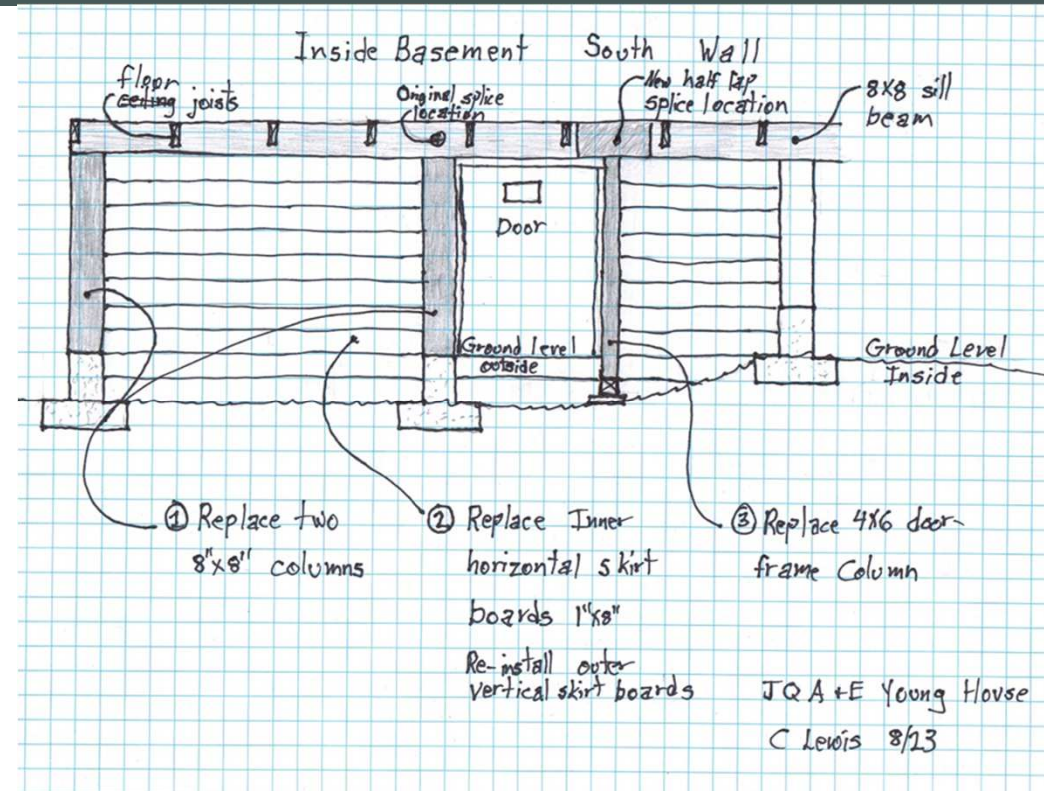 Inside Basement South Wall
floor
ceiling joists
Original splice
location
New half lap
splice location
8x8 sill
beam
Door
Ground level
outside
Ground Level
Inside
① Replace two
8"x8" columns
② Replace Inner
horizontal skirt
boards 1"x8"
Re-install outer
vertical skirt boards
③ Replace 4x6 door-
frame Column
J Q A + E Young House
C Lewis 8/23